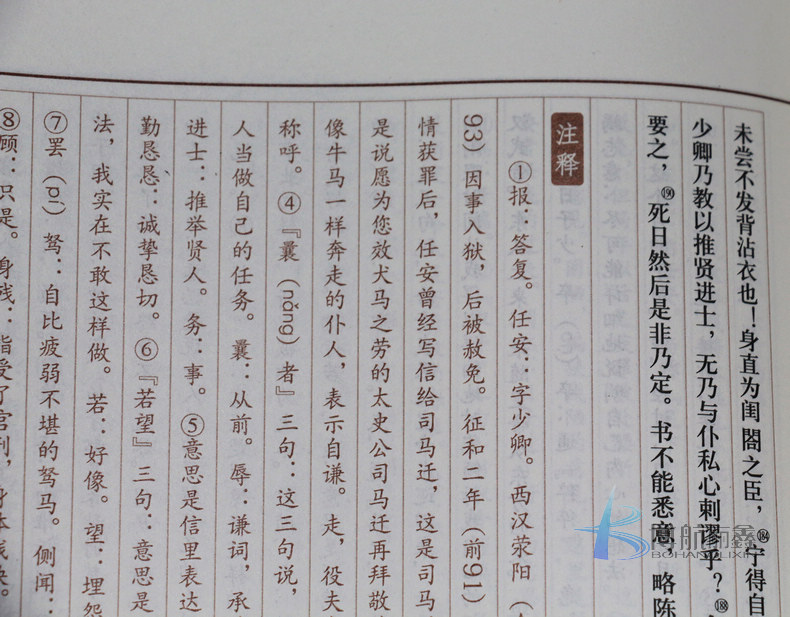 未尝不发背沾衣也！身直为闺閤之臣，⑱宁得自
少卿乃教以推贤进士，无乃与仆私心刺谬乎？⑱
要之，⑲死日然后是非乃定。书不能悉意，略陈
注释
①报：答复。任安：字少卿。西汉荥阳（
93）因事入狱，后被赦免。征和二年（前91）
情获罪后，任安曾经写信给司马迁，这是司马
是说愿为您效犬马之劳的太史公司马迁再拜敬
像牛马一样奔走的仆人，表示自谦。走，役夫
称呼。④『曩（nǒng）者』三句：这三句说，
人当做自己的任务。曩：从前。辱：谦词，承
进士：推举贤人。务：事。⑤意思是信里表达
勤恳恳：诚挚恳切。⑥『若望』三句：意思是
法，我实在不敢这样做。若：好像。望：埋怨
⑦罢（pí）驽：自比疲弱不堪的驽马。侧闻：
⑧顾：只是。身残：指受了宫刑，身体残缺。
BOHANGLIXIN